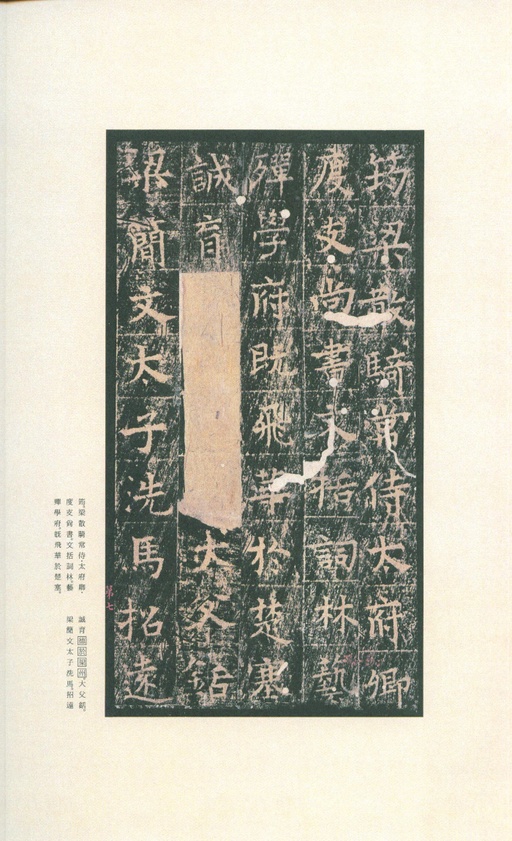 筠梁散騎常侍太府卿
度支尚書文括詞林藝
殫學府既飛華於楚塞
誠育大父銛
梁簡文太子洗馬招遠
第七
筠,梁散騎常侍、太府卿、
度支尚書。文括詞林,藝
殫學府。既飛華於楚塞,
誠育大父銛,
梁簡文太子洗馬、招遠